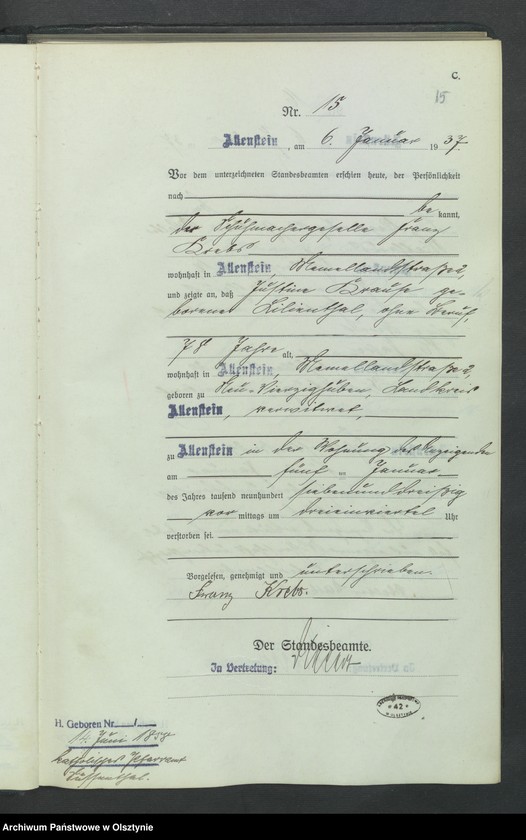 C.
15
Nr. 15
Allenstein, am 6. Januar 1937.
Vor dem unterzeichneten Standesbeamten erschien heute, der Persönlichkeit
nach
be kannt,
der Schuhmachergeselle Franz
Krebs
wohnhaft in Allenstein, Memellandstraße 2,
und zeigte an, daß Justine Krause ge-
borene Lilienthal, ohne Beruf,
78 Jahre alt,
wohnhaft in Allenstein, Memellandstraße 2,
geboren zu Neu-Vierzighuben, Landkreis
Allenstein, verwitwet,
zu Allenstein in der Wohnung des Anzeigenden
am fünf ten Januar
des Jahres tausend neunhundert siebenunddreißig
vor mittags um dreieinviertel Uhr
verstorben sei.
Vorgelesen, genehmigt und unterschrieben.
Franz Krebs.
Der Standesbeamte.
In Vertretung:
* 42 *
H. Geboren Nr. /
Juni 1858
Katholisches Pfarramt
Archiwum Państwowe w Olsztynie